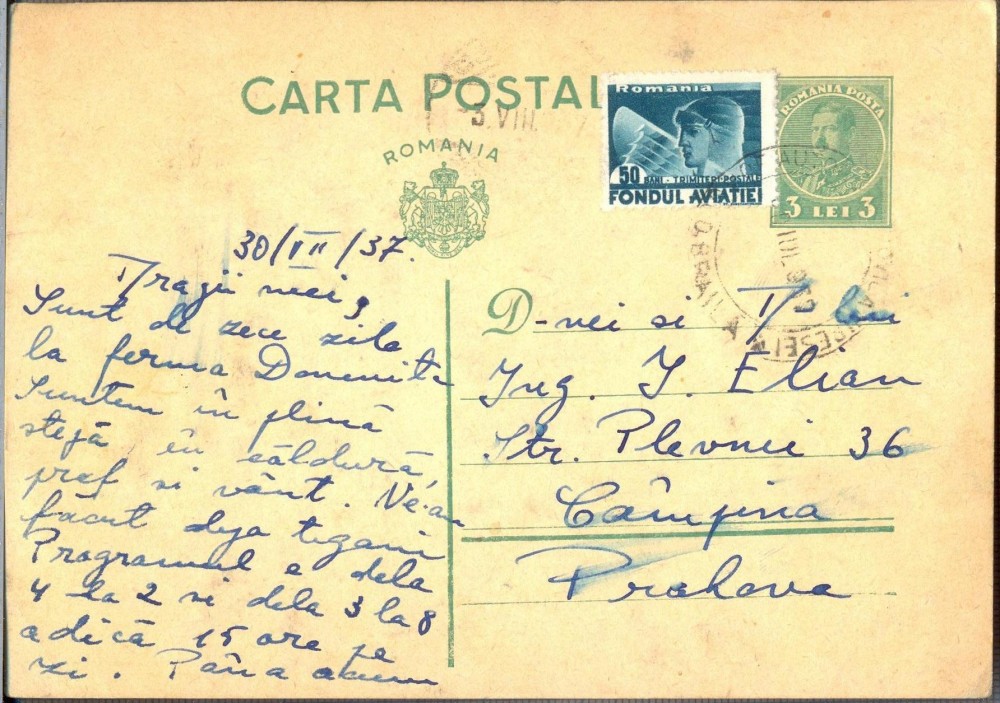 CARTA POSTAL
ROMANIA
3.VIII.
Romania
50 BANI - TRIMITERI POSTALE
FONDUL AVIATIEI
ROMANIA POSTA
3 LEI 3
BRAILA
30/VII/37.
Dragii mei,
Sunt de zece zile
la ferma
Suntem în plină
stepă în căldură,
praf si vânt. Ne-am
făcut deja tigani
Programul e dela
4 la 2 si dela 3 la 8
adică 15 ore pe
zi. Până acum
D-nei si D-lui
Ing. I. Elian
Str. Plevnei 36
Câmpina
Prahova